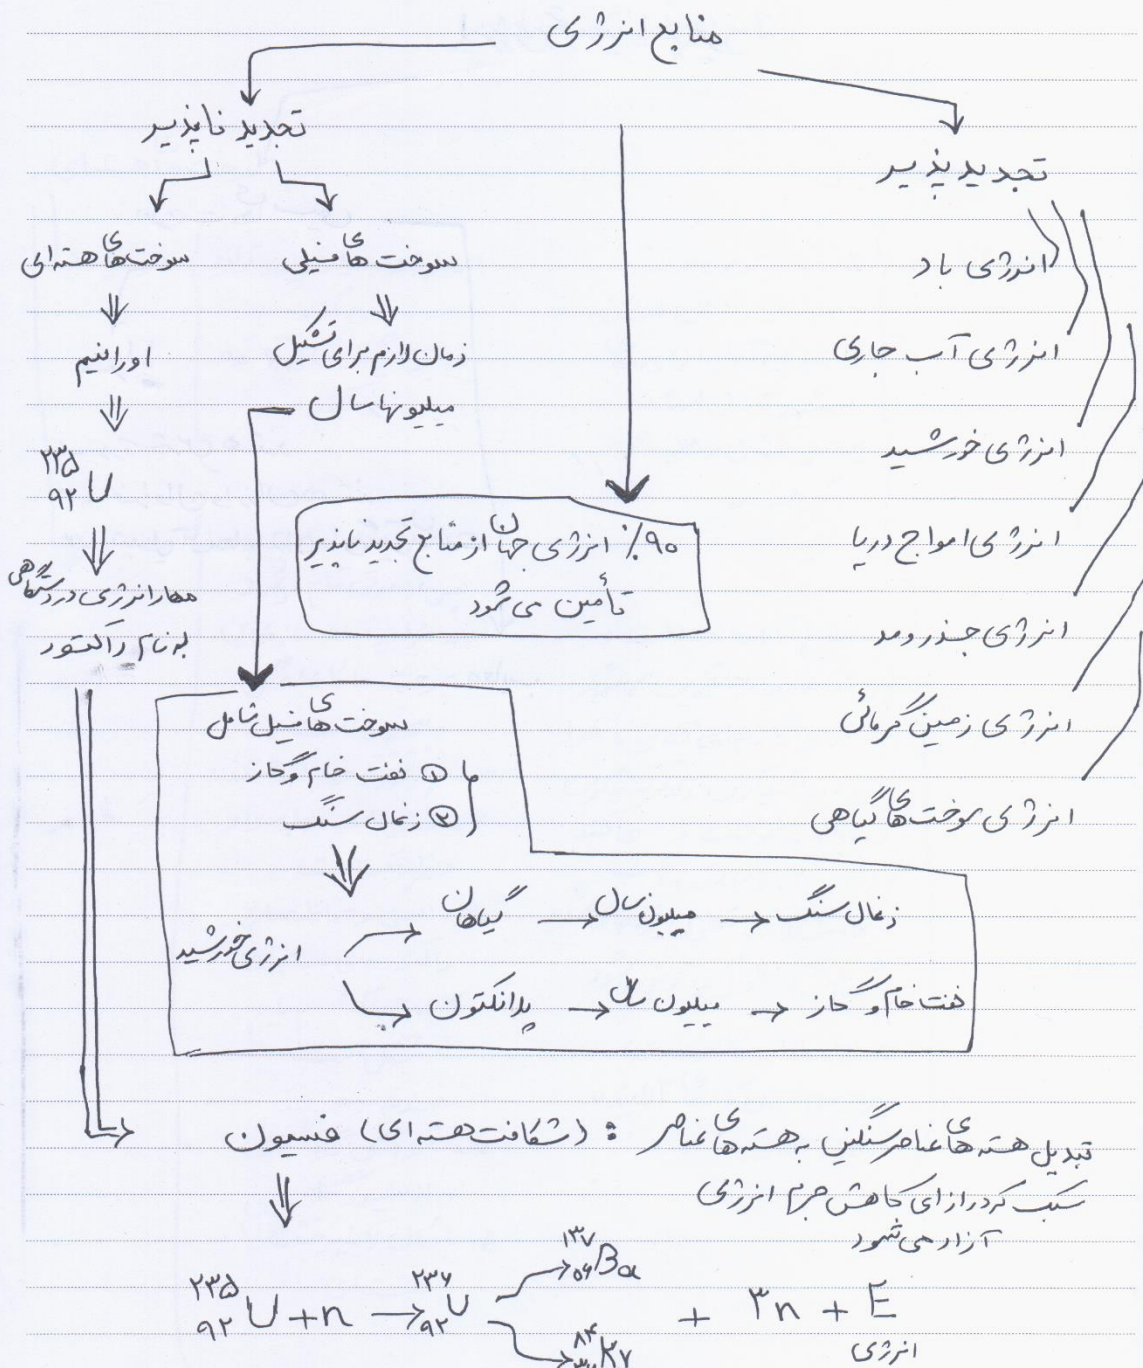 منابع انرژی
تجدید پذیر
انرژی باد
انرژی آب جاری
انرژی خورشید
انرژی امواج دریا
انرژی جذر و مد
انرژی زمین گرمائی
انرژی سوخت های گیاهی
تجدید ناپذیر
سوخت های فسیلی
زمان لازم برای تشکیل
میلیونها سال
سوخت های هسته ای
اورانیم
۲۳۵
۹۲ U
مهار انرژی در دستگاهی
به نام رآکتور
۹۰٪ انرژی جهان از منابع تجدید ناپذیر
تأمین می شود
سوخت های فسیلی شامل
① نفت خام و گاز
② زغال سنگ
انرژی خورشید → گیاهان → میلیون سال → زغال سنگ
→ پلانکتون → میلیون سال → نفت خام و گاز
فسیون (شکافت هسته ای) : تبدیل هسته های عناصر سنگین به هسته های عناصر
سبک که در ازای کاهش جرم انرژی
آزاد می شود
۲۳۵ ۲۳۶ ۱۳۷
۹۲ U + n → ۹۲ U → ۵۶ Ba + ۳n + E
انرژی